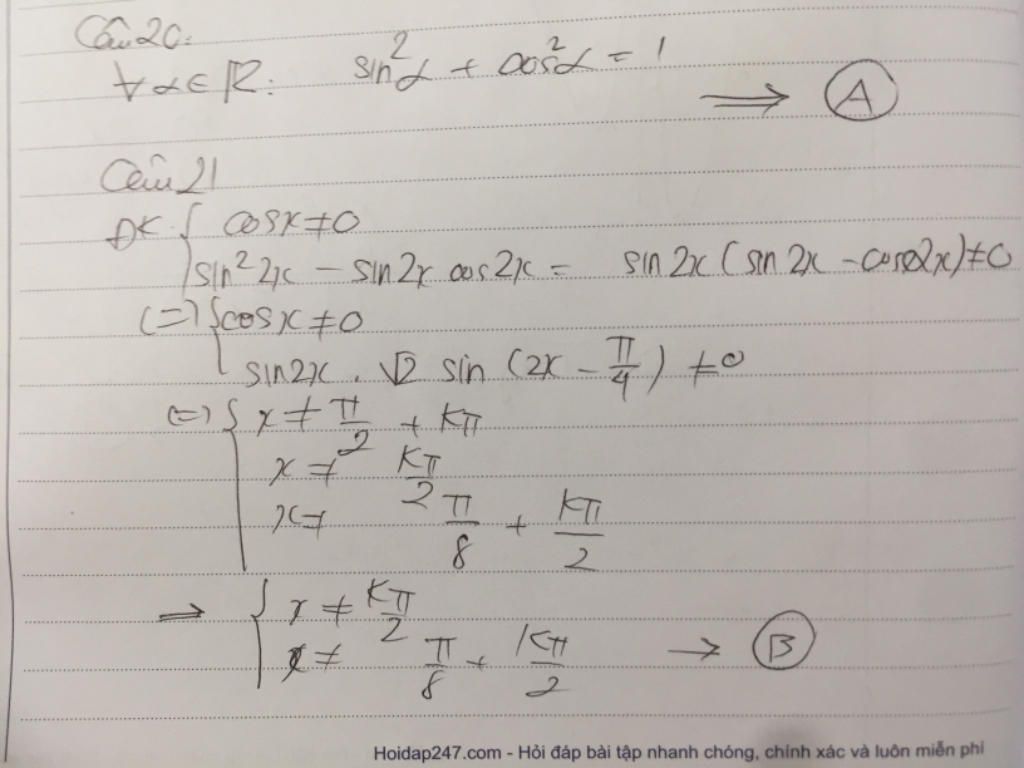 Câu 20:
∀α∈ℝ: sin²α + cos²α = 1
⟹ A
Câu 21
ĐK { cosx ≠ 0
sin²2x - sin2x cos2x = sin2x (sin2x - cos2x) ≠ 0
(=) { cosx ≠ 0
sin2x . √2 sin (2x - π/4) ≠ 0
(=) { x ≠ π/2 + Kπ
x ≠ Kπ/2
x ≠ π/8 + Kπ/2
⟹ { x ≠ Kπ/2
x ≠ π/8 + Kπ/2 → B
Hoidap247.com - Hỏi đáp bài tập nhanh chóng, chính xác và luôn miễn phí